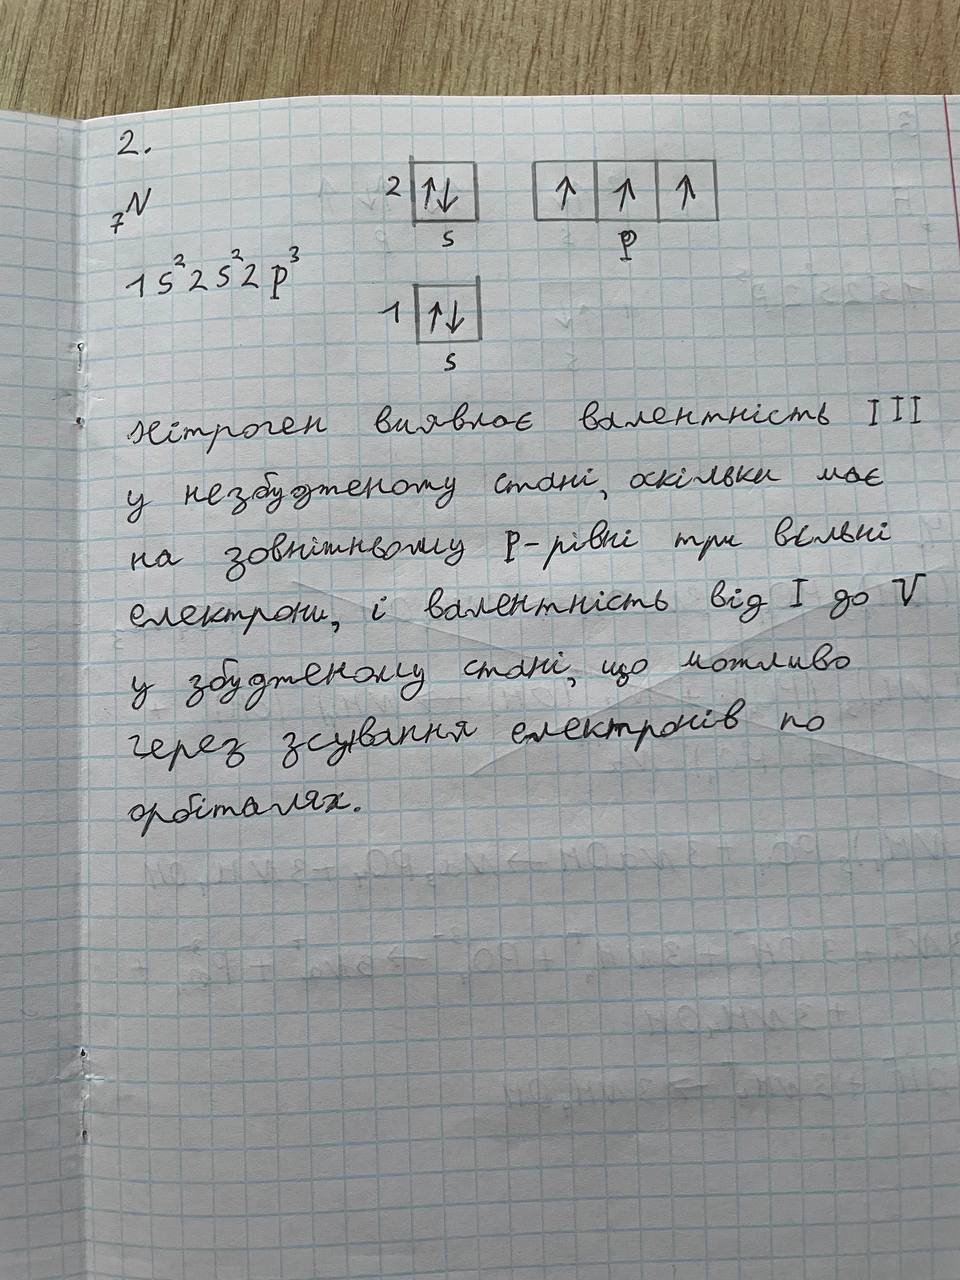 2.
₇N
2 ↑↓ ↑ ↑ ↑
s p
1s²2s²2p³
1 ↑↓
s
Нітроген виявляє валентність III
у незбудженому стані, оскільки має
на зовнішньому p-рівні три вільні
електрони, і валентність від I до V
у збудженому стані, що можливо
через зсування електронів по
орбіталях.